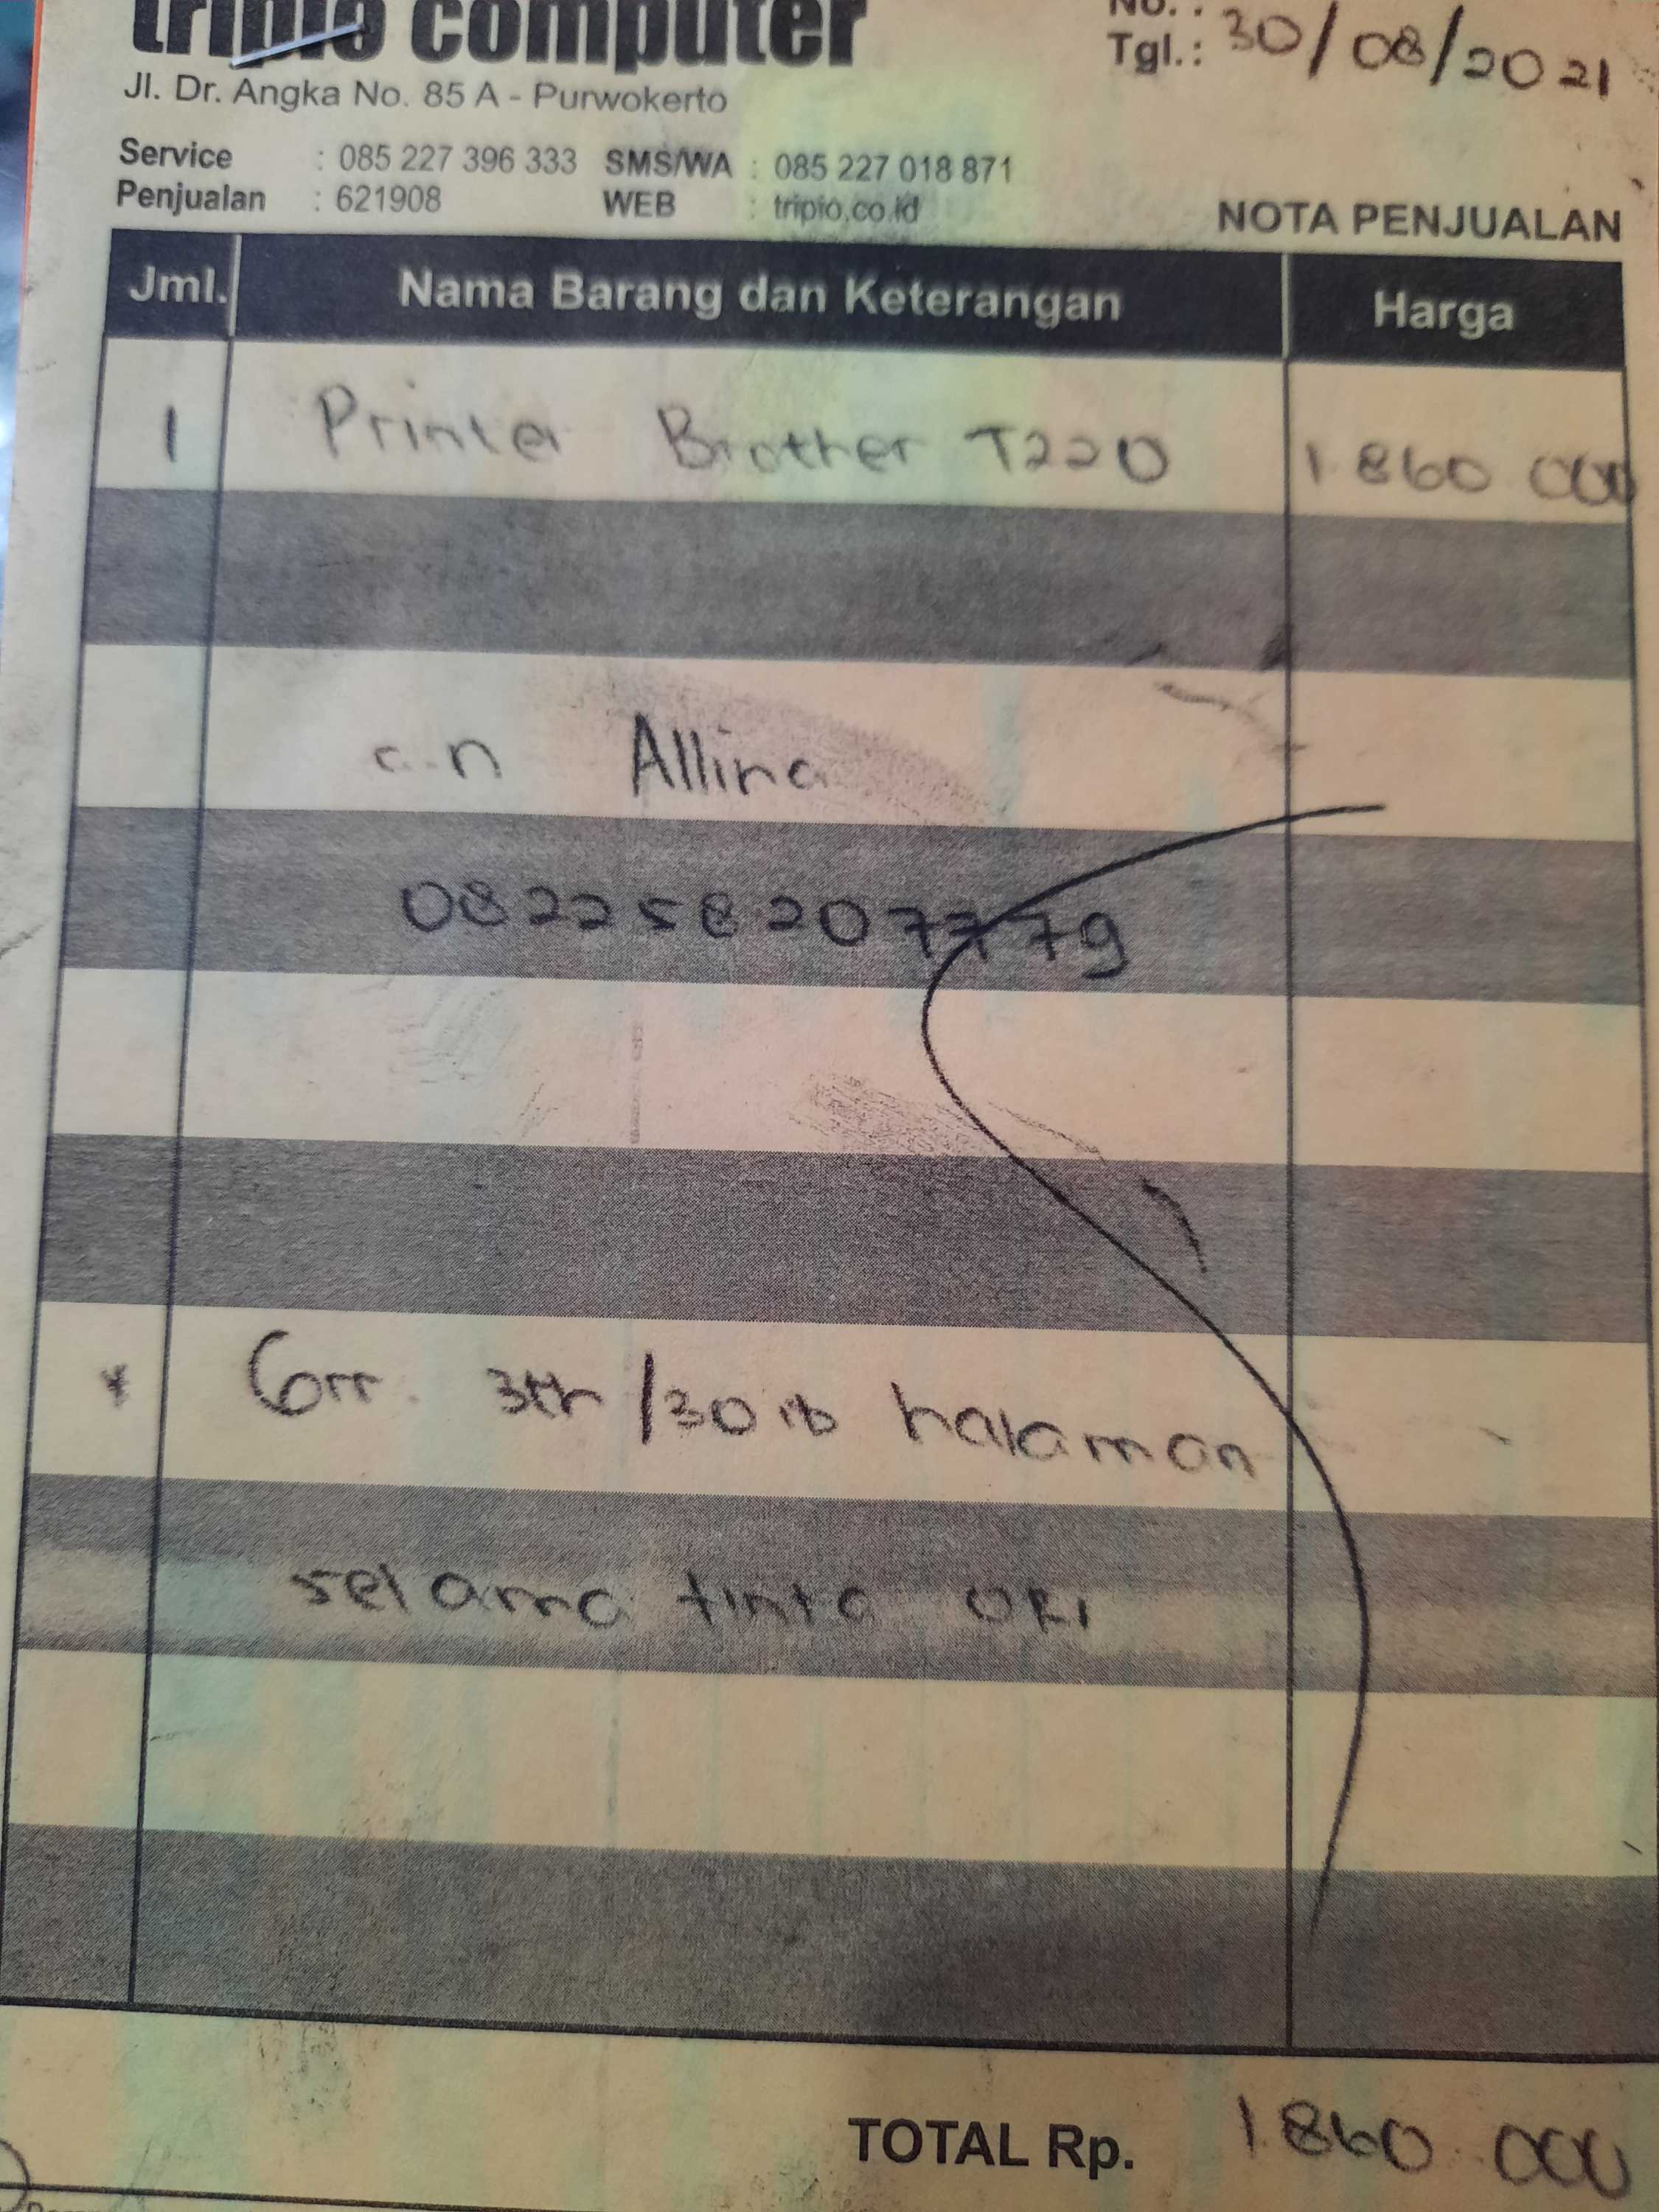 tripio computer
No. :
Tgl.: 30/08/2021
Jl. Dr. Angka No. 85 A - Purwokerto
Service : 085 227 396 333 SMS/WA : 085 227 018 871
Penjualan : 621908 WEB : tripio.co.id
NOTA PENJUALAN
Jml. Nama Barang dan Keterangan Harga
1 Printer Brother T220 1 860 000
a.n Allina
082258207779
* Grr. 3th/30rb halaman
selama tinta ORI
TOTAL Rp. 1.860.000